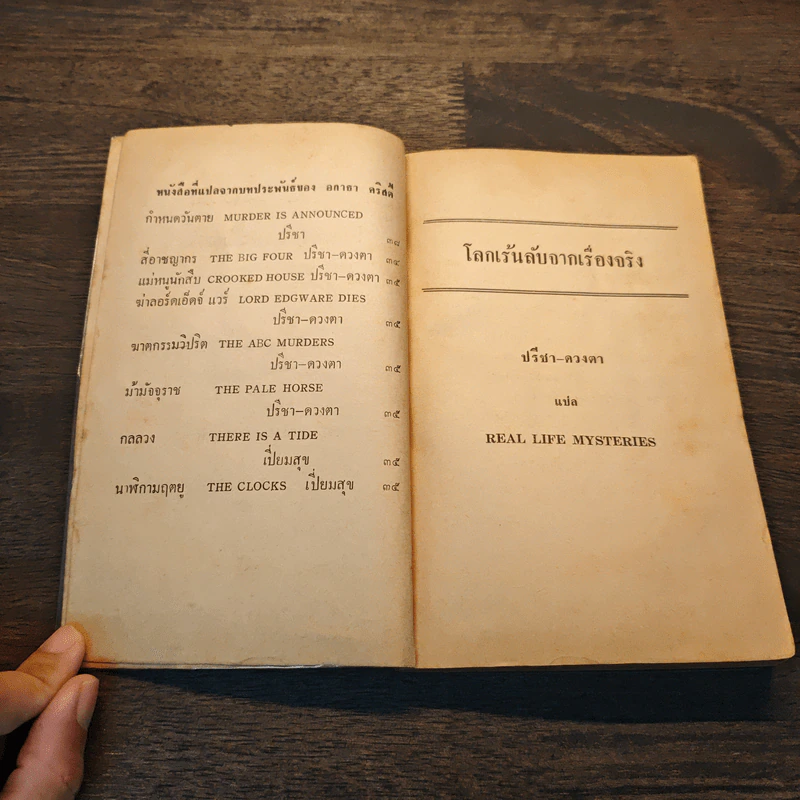 หนังสือที่แปลจากบทประพันธ์ของ อกาธา คริสตี
กำหนดวันตาย MURDER IS ANNOUNCED
ปรีชา ๓๘
สี่อาชญากร THE BIG FOUR ปรีชา-ดวงตา ๓๔
แม่หนูนักสืบ CROOKED HOUSE ปรีชา-ดวงตา ๓๕
ฆ่าลอร์ดเอ็ดจ์ แวร์ LORD EDGWARE DIES
ปรีชา-ดวงตา ๓๕
ฆาตกรรมวิปริต THE ABC MURDERS
ปรีชา-ดวงตา ๓๕
ม้ามัจจุราช THE PALE HORSE
ปรีชา-ดวงตา ๓๕
กลลวง THERE IS A TIDE
เปี่ยมสุข ๓๕
นาฬิกามฤตยู THE CLOCKS เปี่ยมสุข ๓๕
โลกเร้นลับจากเรื่องจริง
ปรีชา-ดวงตา
แปล
REAL LIFE MYSTERIES